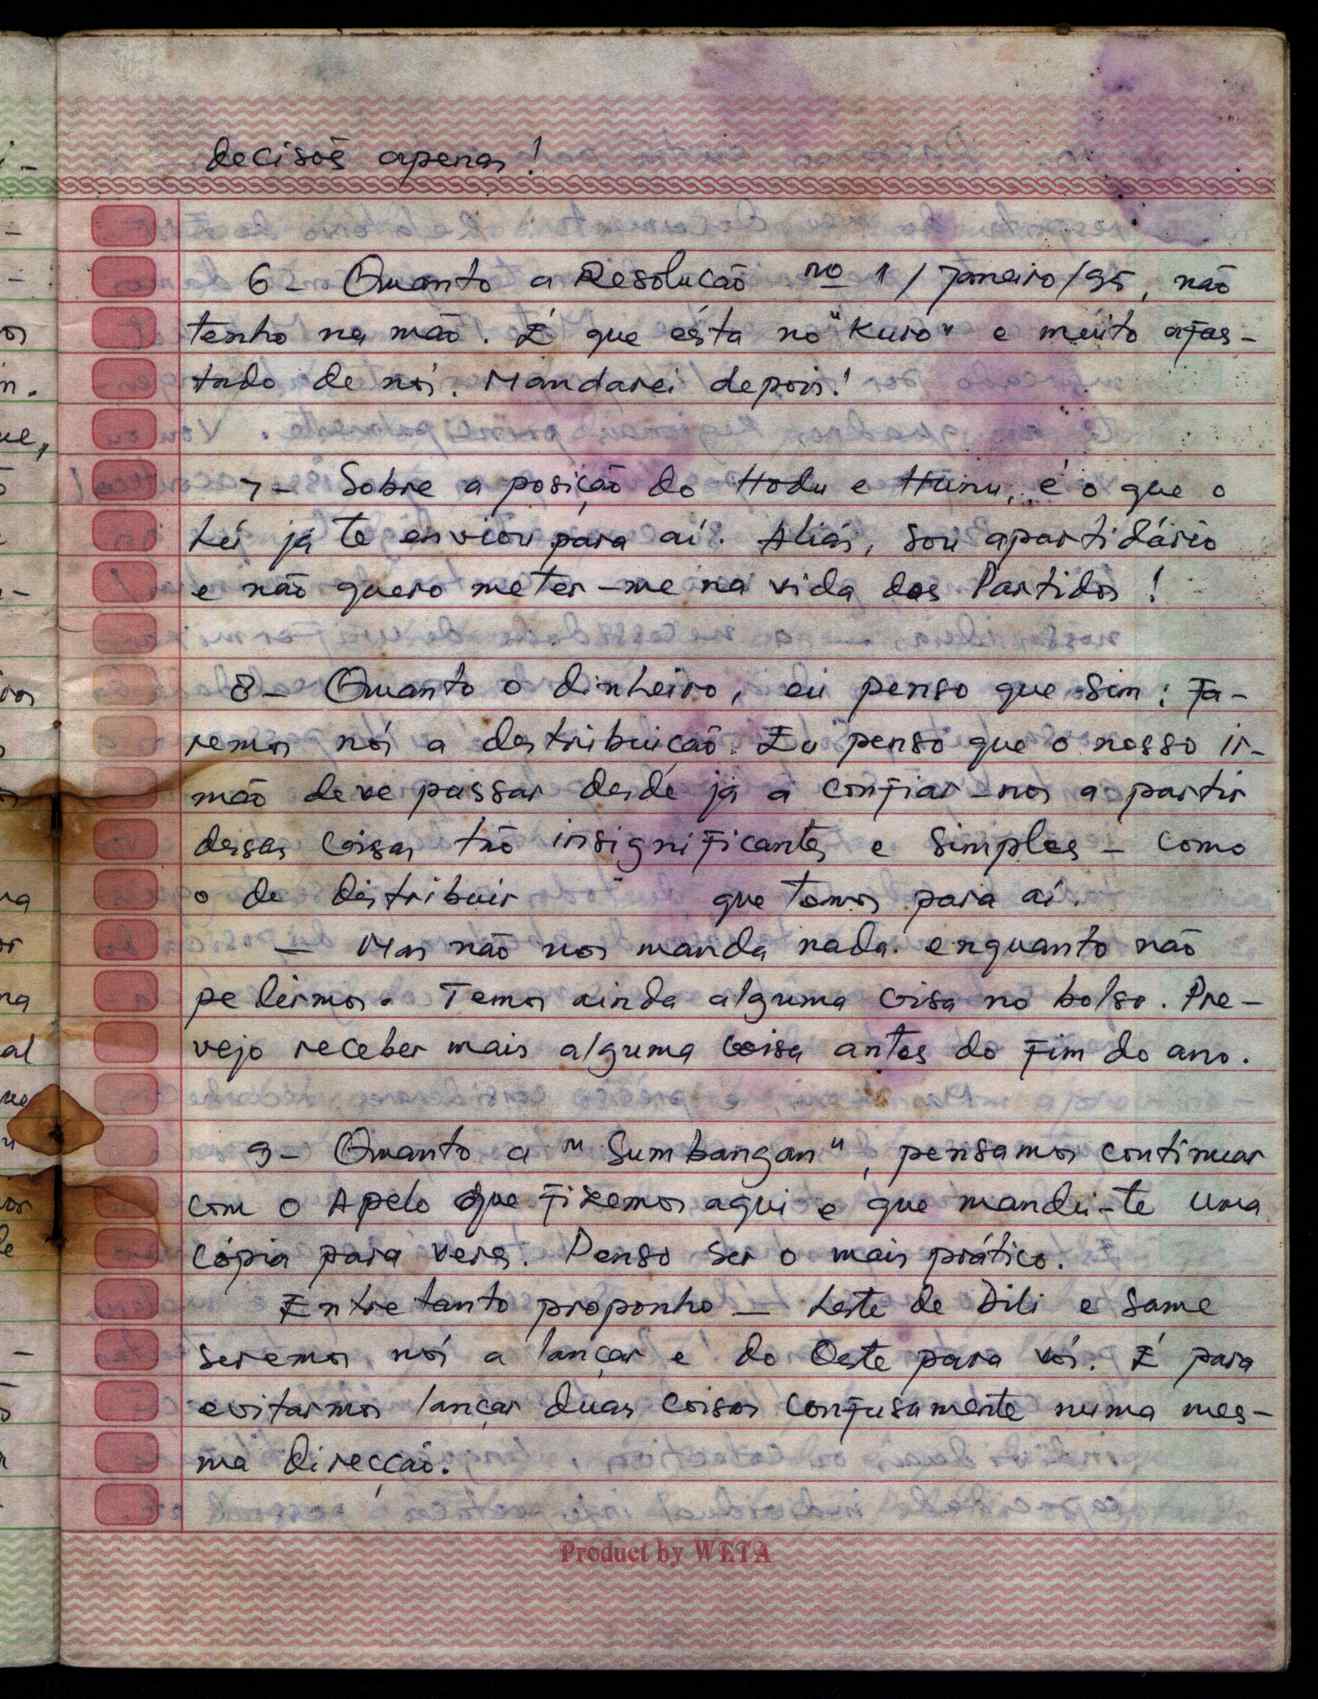 decisõs apenas!
6 - Quanto a Resolução nº 1/Janeiro/95, não
tenho na mão. É que ésta no "Kuro" e muito afas-
tado de nós. Mandarei depois!
7 - Sobre a posição do Hodu e Hunu, é o que o
Lú já te enviou para aí. Aliás, sou apartidário
e não quero meter-me na vida dos Partidos!
8 - Quanto o dinheiro, eu penso que sim: Fa-
remos nós a destribuição. Eu penso que o nosso ir-
mão deve passar desde já a confiar-nos a partir
dessas coisas tão insignificantes e simples - como
o de distribuir que temos para aí.
- Mas não nos manda nada. enquanto não
pedirmos. Temos ainda alguma coisa no bolso. Pre-
vejo receber mais alguma coisa antes do fim do ano.
9 - Quanto a "Sumbangan", pensamos continuar
com o Apelo que fizemos aqui e que mandei-te uma
cópia para veres. Penso ser o mais prático.
Entretanto proponho - Leste de Dili e Same
seremos nós a lançar e do Oeste para vós. É para
evitarmos lançar duas coisas confusamente numa mes-
ma direcção.
Product by WETA